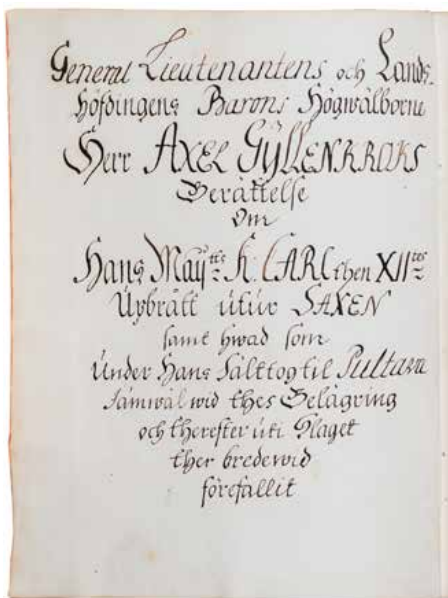 General Lieutenantens och Lands-
Höfdingens Barons Högwälborne
Herr AXEL GŸLLENKROKS
Berättelse
Om
Hans Maÿtts K. CARL then XIItes
Upbrått utur SAXEN
samt hwad som
Under Hans Fälttog til Pultava
såmwäl wid thes Belägring
och therefter uti Slaget
ther bredewid
förefallit